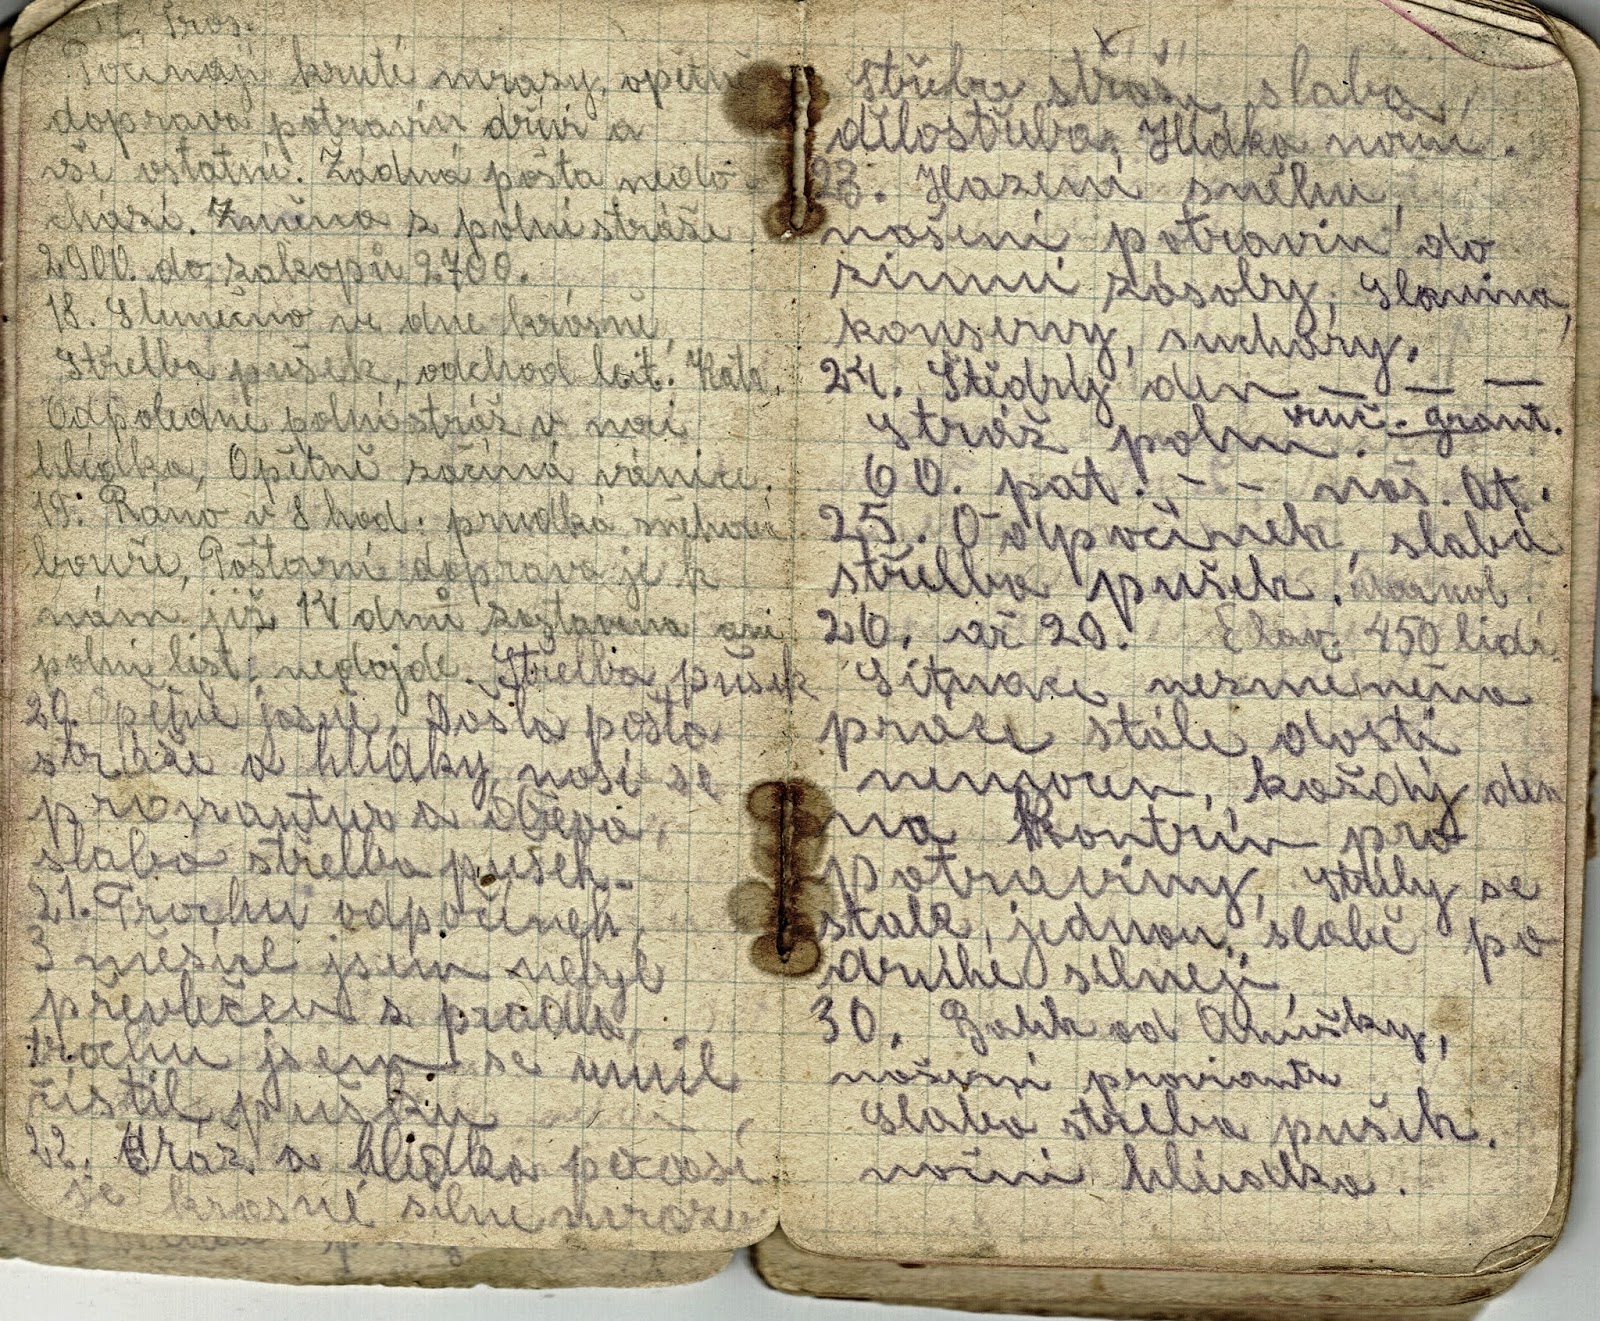 17. Pros.
Počínají kruté mrazy, opětně
doprava potravin dříví a
vší ostatní. Žádná pošta nedo-
chází. Změna z polní stráže
2900. do zákopů 2700.
18. Slunečno ve dne krásně,
Střelba pušek, odchod lait. Kab.
Odpoledne polní stráž v noci
hlídka, Opětně začíná vánice.
19. Ráno v 8 hod. prudká sněhová
bouře, Poštovní doprava je k
nám již 14 dnů zastavena ani
polní list. nedojde. Střelba pušek
20. Opětně jasně, Došla pošta
stráže a hlídky, nosí se
proviantura a dřeva,
slaba střelba pušek.
21. Trochu odpočinek,
3 měsíce jsem nebyl
převlečen z prádla,
trochu jsem se umil
čistil pušku
22. Stráž a hlídka počasí
je krásné silné mrazy
Střelba stráží, slaba,
dělostřelba. Hlídka noční.
23. Hazení sněhu,
nošení potravin do
zimní zásoby, Slanina,
konservy, suchary.
24. Štědrý den — — —
Stráž polní. ruč. grant.
60. pat. - - noš. At.
25. Odpočinek, slabá
střelba pušek.
26. až 29. 450 lidí.
Situace nezměněna
práce stále dosti
nemocen, každý den
na Kontrin pro
potraviny, Střely se
stale, jednou, slabě po
druhé silněji,
30. Balík od Anušky,
nošení proviantu
Slaba střelba pušek.
noční hlídka.